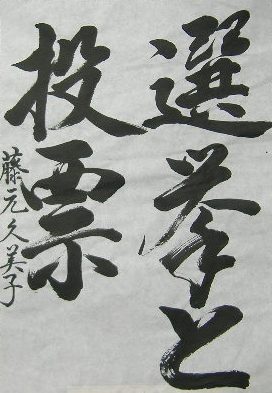 選挙と
投票
藤元久美子